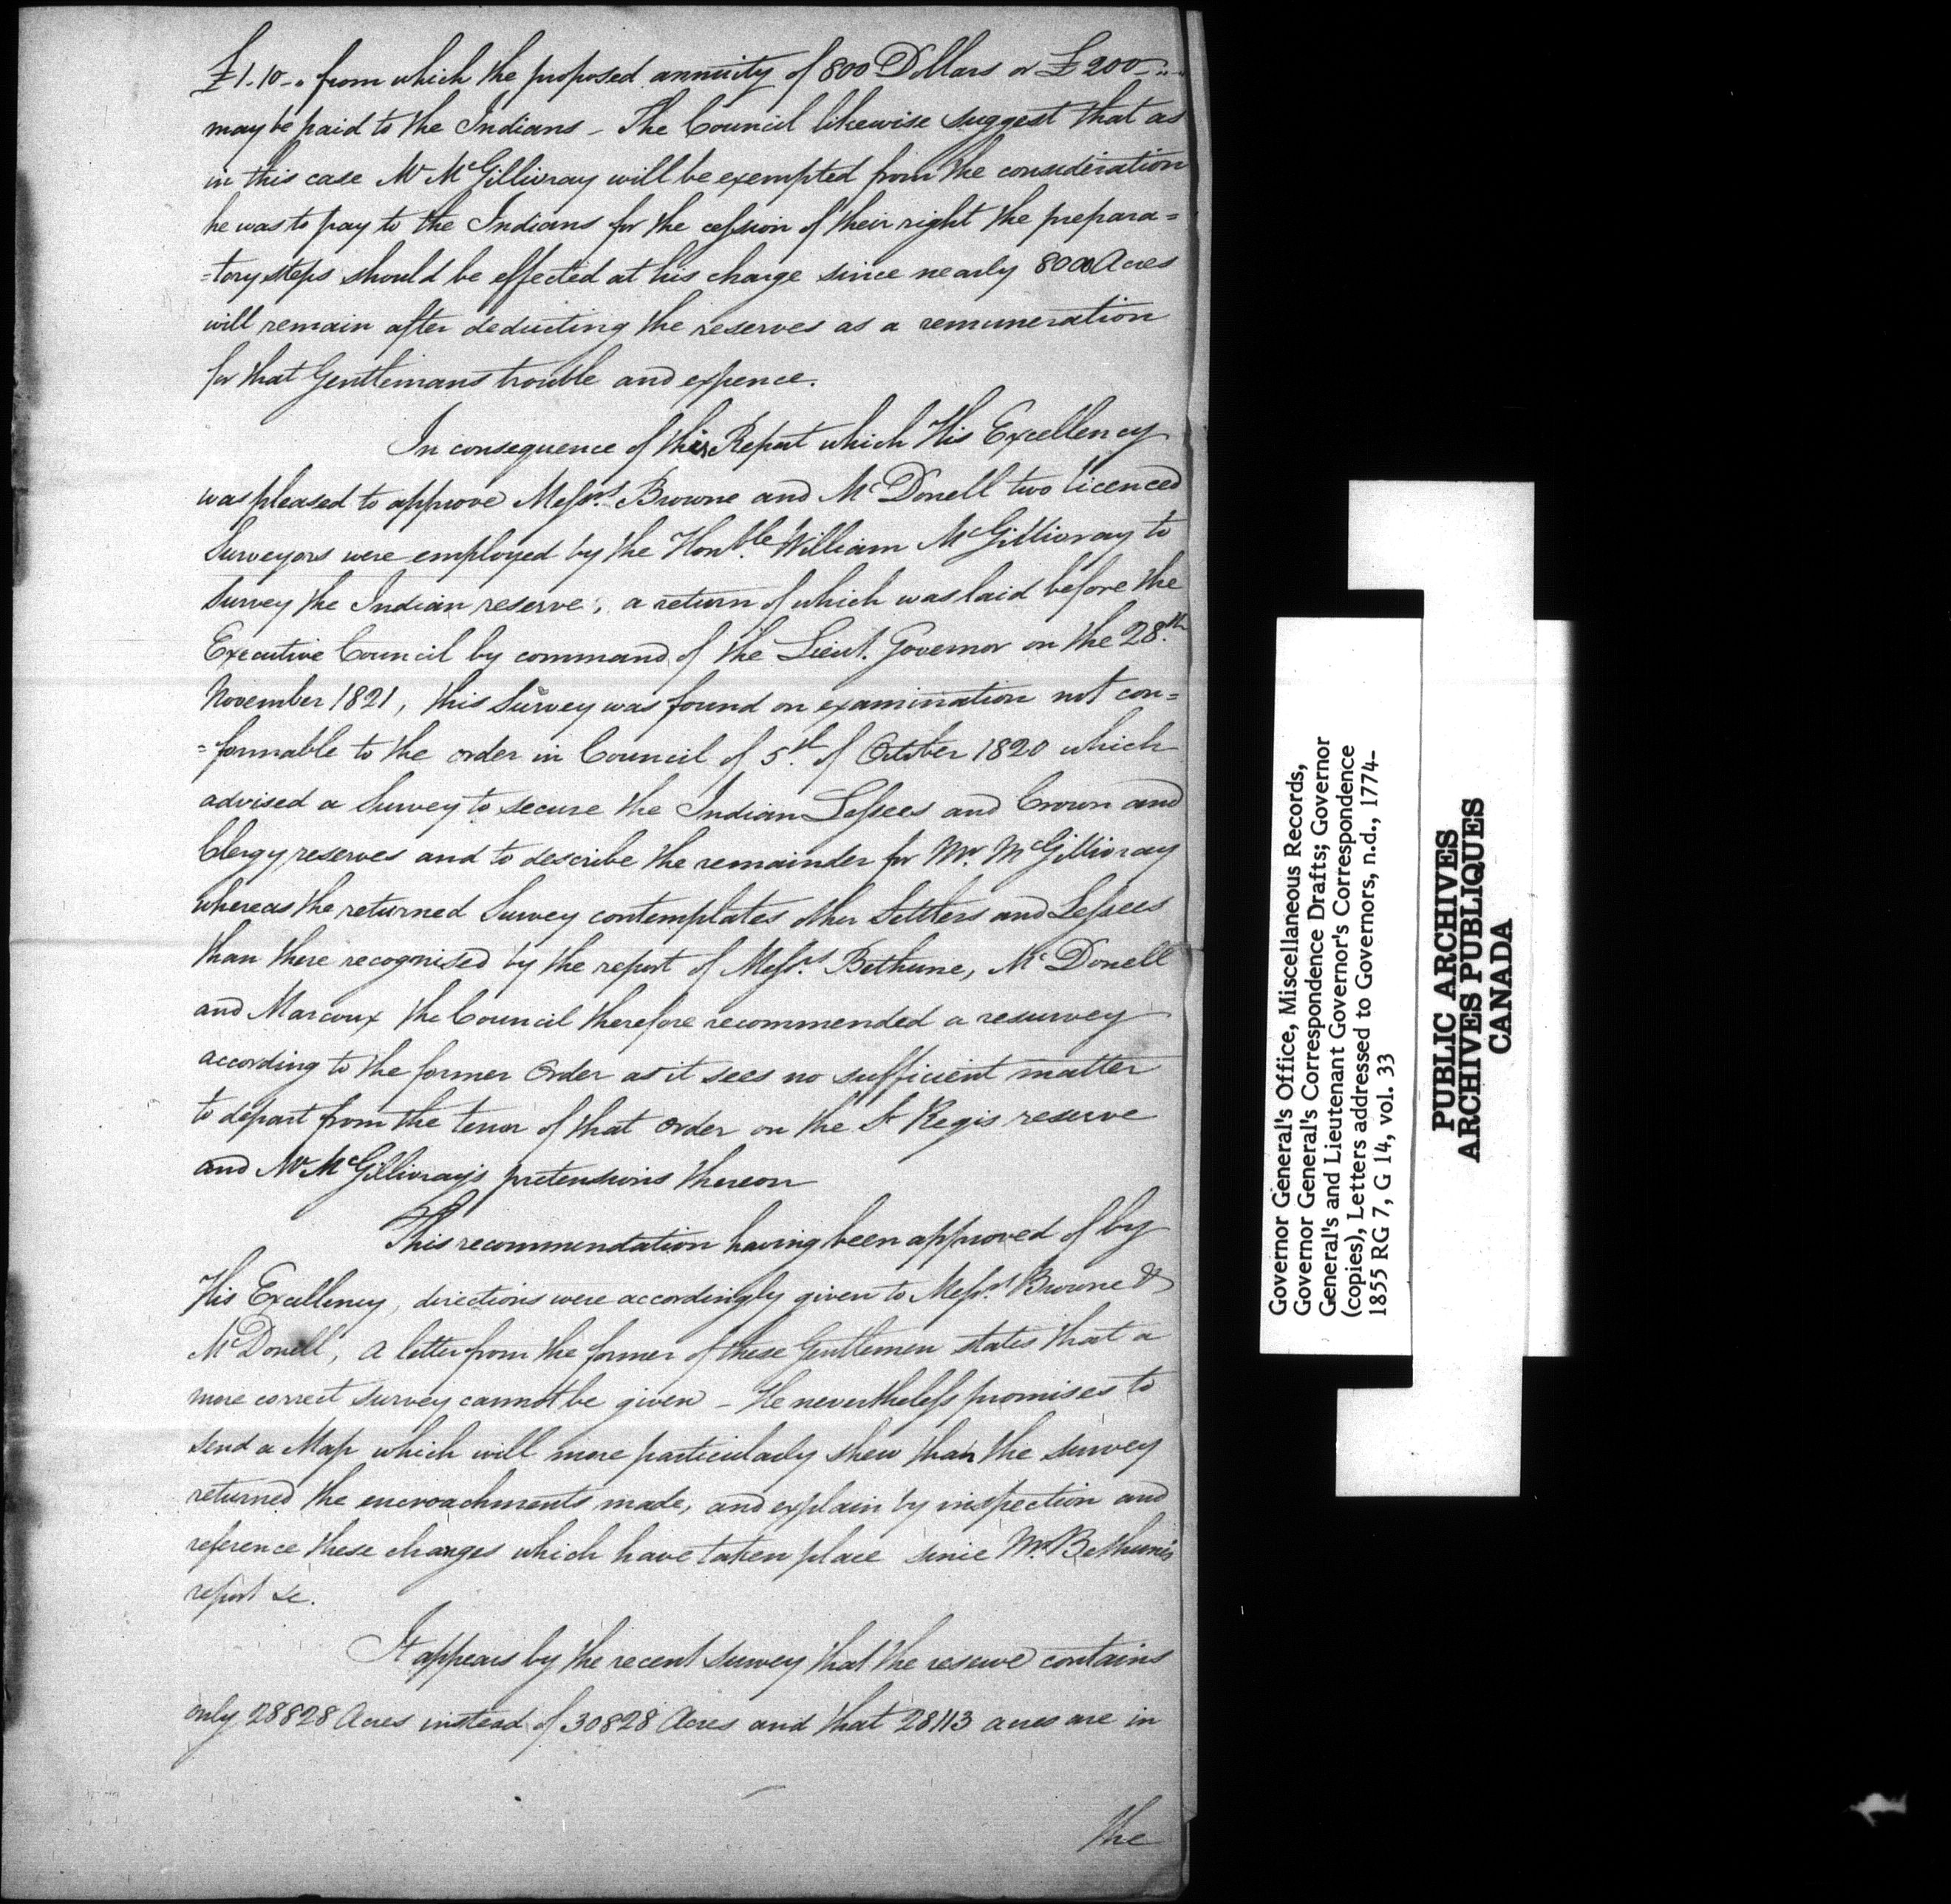 £1.10-. from which the proposed annuity of 800 Dollars or £200-.-.-
may be paid to the Indians - The Council likewise suggest that as
in this case Mr McGillivray will be exempted from the consideration
he was to pay to the Indians for the cession of their right the prepara=
=tory steps should be effected at his charge since nearly 8000 Acres
will remain after deducting the reserves as a remuneration
for that Gentlemans trouble and expence.
In consequence of this Report which His Excellency
was pleased to approve Messrs. Browne and McDonell two licenced
Surveyors were employed by the Honble. William McGillivray to
Survey the Indian reserve, a return of which was laid before the
Executive Council by command of the Lieut. Governor on the 28.th
November 1821, this Survey was found on examination not con=
=formable to the order in Council of 5.th of October 1820 which
advised a Survey to secure the Indian Lessees and Crown and
Clergy reserves and to describe the remainder for Mr. McGillivray
whereas the returned Survey contemplates other Settlers and Lessees
than there recognised by the report of Messrs. Bethune, McDonell
and Marcoux the Council therefore recommended a resurvey
according to the former Order as it sees no sufficient matter
to depart from the tenor of that order on the St Regis reserve
and Mr McGillivray's pretensions thereon
This recommendation having been approved of by
His Excellency, directions were accordingly given to Messrs. Browne &
McDonell, a letter from the former of these Gentlemen states that a
more correct survey cannot be given - He nevertheless promises to
send a Map which will more particularly shew than the survey
returned the encroachments made, and explain by inspection and
reference these changes which have taken place since Mr. Bethune's
report &c.
It appears by the recent survey that the reserve contains
only 28828 Acres instead of 30828 Acres and that 28113 acres are in
the
Governor General's Office, Miscellaneous Records,
Governor General's Correspondence Drafts; Governor
General's and Lieutenant Governor's Correspondence
(copies), Letters addressed to Governors, n.d., 1774-
1855 RG 7, G 14, vol. 33
PUBLIC ARCHIVES
ARCHIVES PUBLIQUES
CANADA